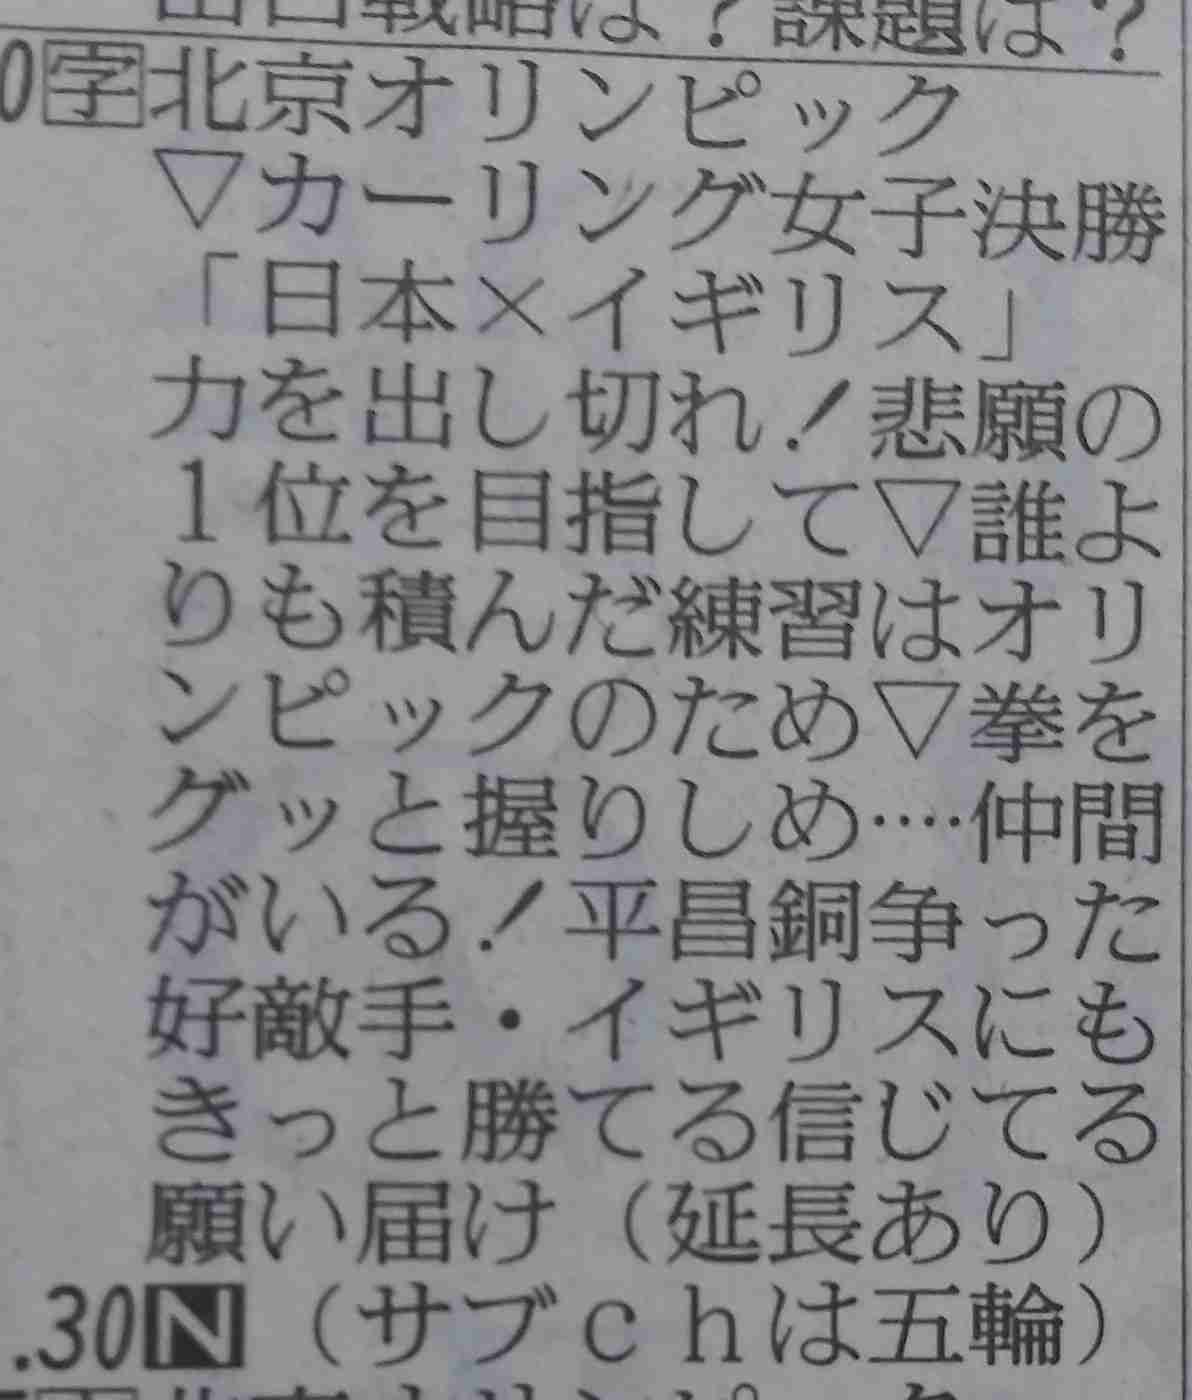 戦略は？課題は？
0字北京オリンピック
▽カーリング女子決勝
「日本×イギリス」
力を出し切れ！悲願の
1位を目指して▽誰よ
りも積んだ練習はオリ
ンピックのため▽拳を
グッと握りしめ‥‥仲間
がいる！平昌銅争った
好敵手・イギリスにも
きっと勝てる信じてる
願い届け（延長あり）
.30N（サブｃｈは五輪）